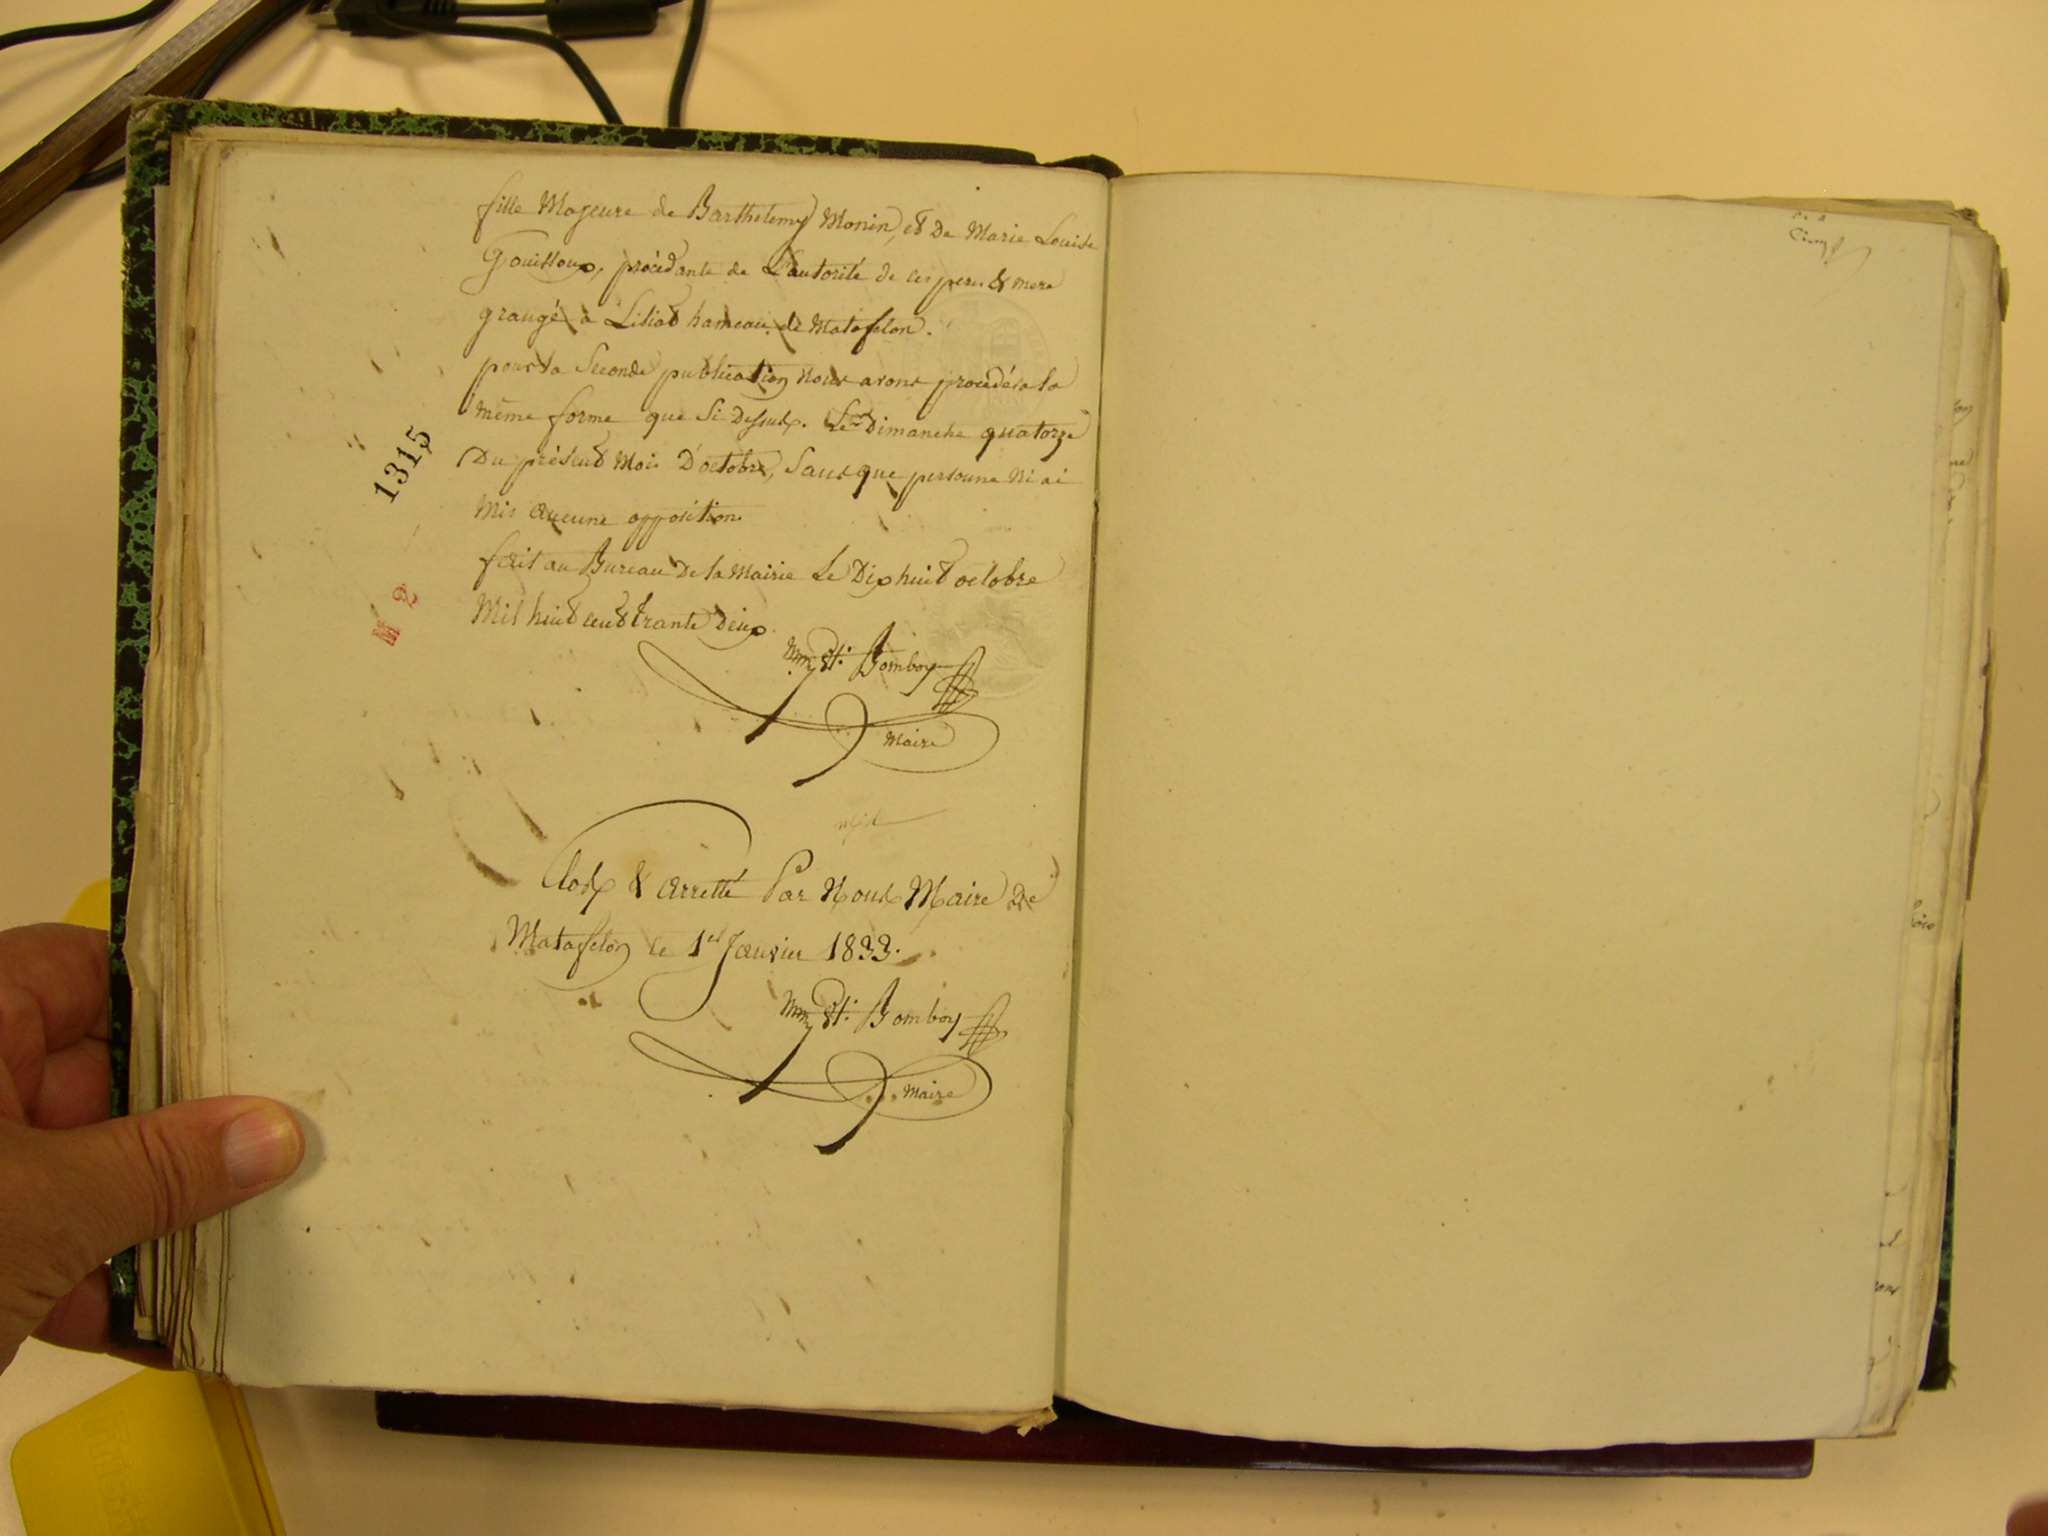 fille Majeure de Barthelemy Monin, et De Marie Louise
Gouilloux, procédante de L'autorité de ces pere & mere
grangé à Lisiat hameau de Matafelon.
pour la Seconde publication Nous avons procédés a la
même forme que Si Dessus. Le Dimanche quatorze
Du présent Mois D'octobre, Sans que personne Ni ai
Mis aucune opposition
fait au Bureau De la Mairie Le Dix huit octobre
Mil huit cent trante Deux.
Bomboy
Maire
1315
M 2
Clos & arretté Par Nous Maire De
Matafelon le 1er Janvier 1833.
Bomboy
Maire
Cinq